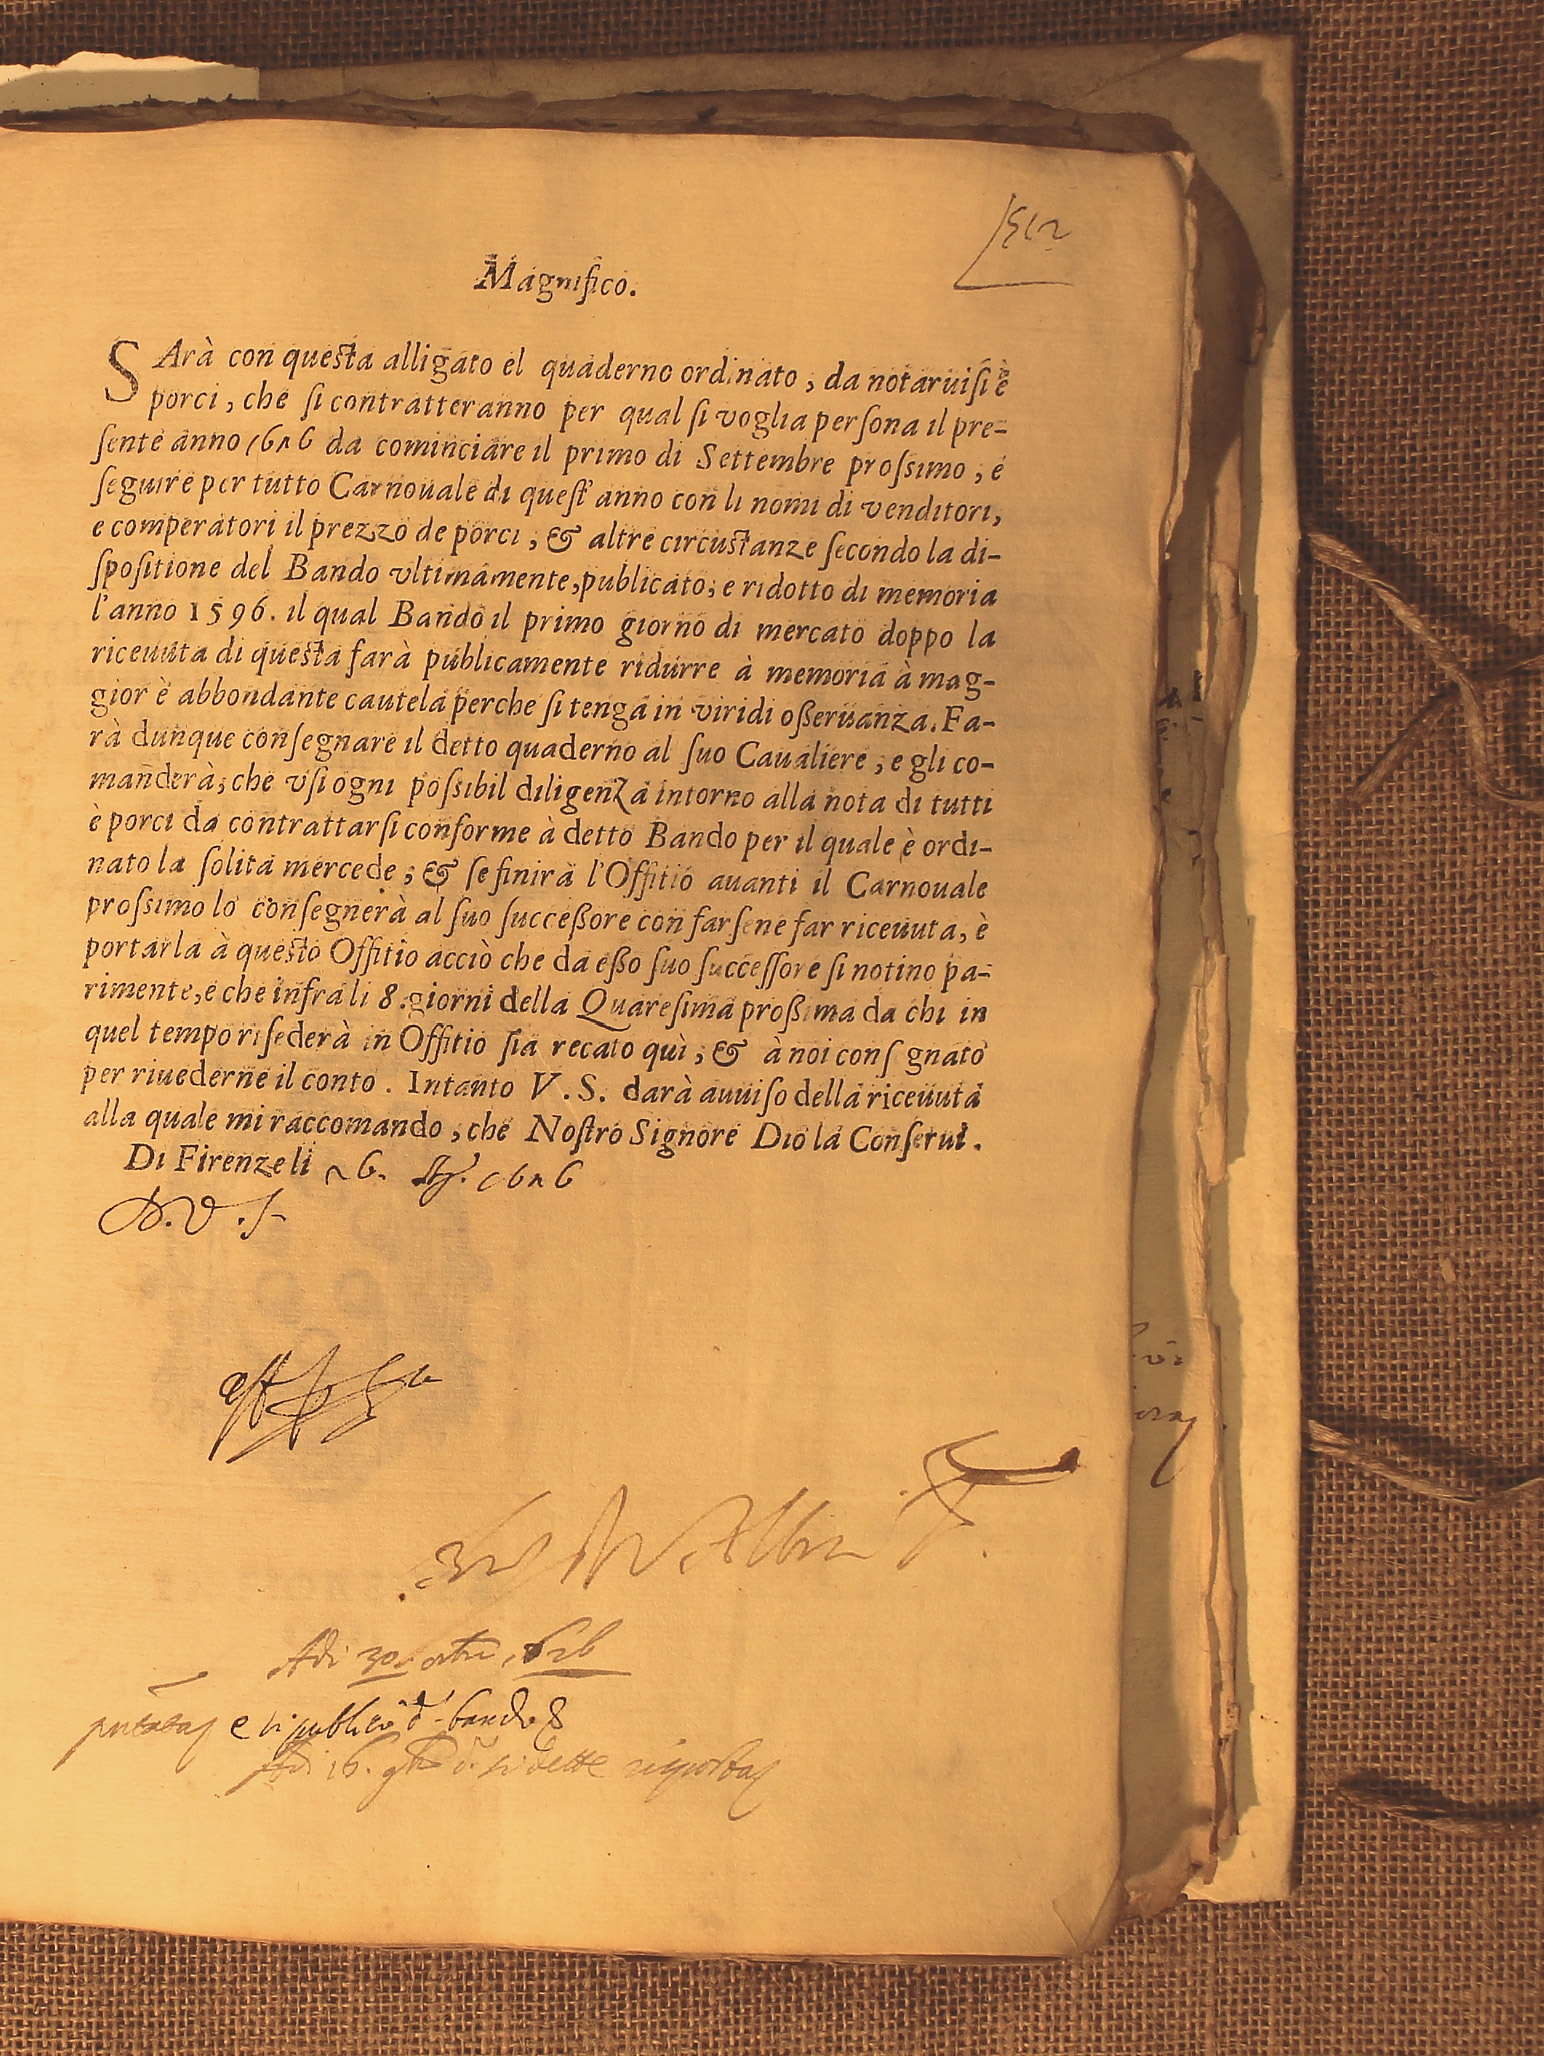 512
Magnifico.
SArà con questa alligato el quaderno ordinato, da notaruisi è
porci, che si contratteranno per qual si voglia persona il pre-
sente anno 1626 da cominciare il primo di Settembre prossimo, e
seguire per tutto Carnouale di quest'anno con li nomi di venditori,
e comperatori il prezzo de porci, & altre circustanze secondo la di-
spositione del Bando vltimamente, publicato, e ridotto di memoria
l'anno 1596. il qual Bando il primo giorno di mercato doppo la
riceuuta di questa farà publicamente ridurre à memoria à mag-
gior è abbondante cautela perche si tenga in viridi osseruanza. Fa-
rà dunque consegnare il detto quaderno al suo Caualiere, e gli co-
manderà, che vsi ogni possibil diligenza intorno alla nota di tutti
è porci da contrattarsi conforme à detto Bando per il quale è ordi-
nato la solita mercede, & se finirà l'Offitio auanti il Carnouale
prossimo lo consegnerà al suo successore con farsene far riceuuta, è
portarla à questo Offitio acciò che da esso suo successore si notino pa-
rimente, e che infra li 8. giorni della Quaresima prossima da chi in
quel tempo risederà in Offitio sia recato quì, & à noi consegnato
per riuederne il conto. Intanto V. S. darà auuiso della riceuuta
alla quale mi raccomando, che Nostro Signore Dio la Conserui.
Di Firenze li 26. 1626
D. V. S.
Adi 30 1626
e si publicò d. bando
Adi 16. d. si dette